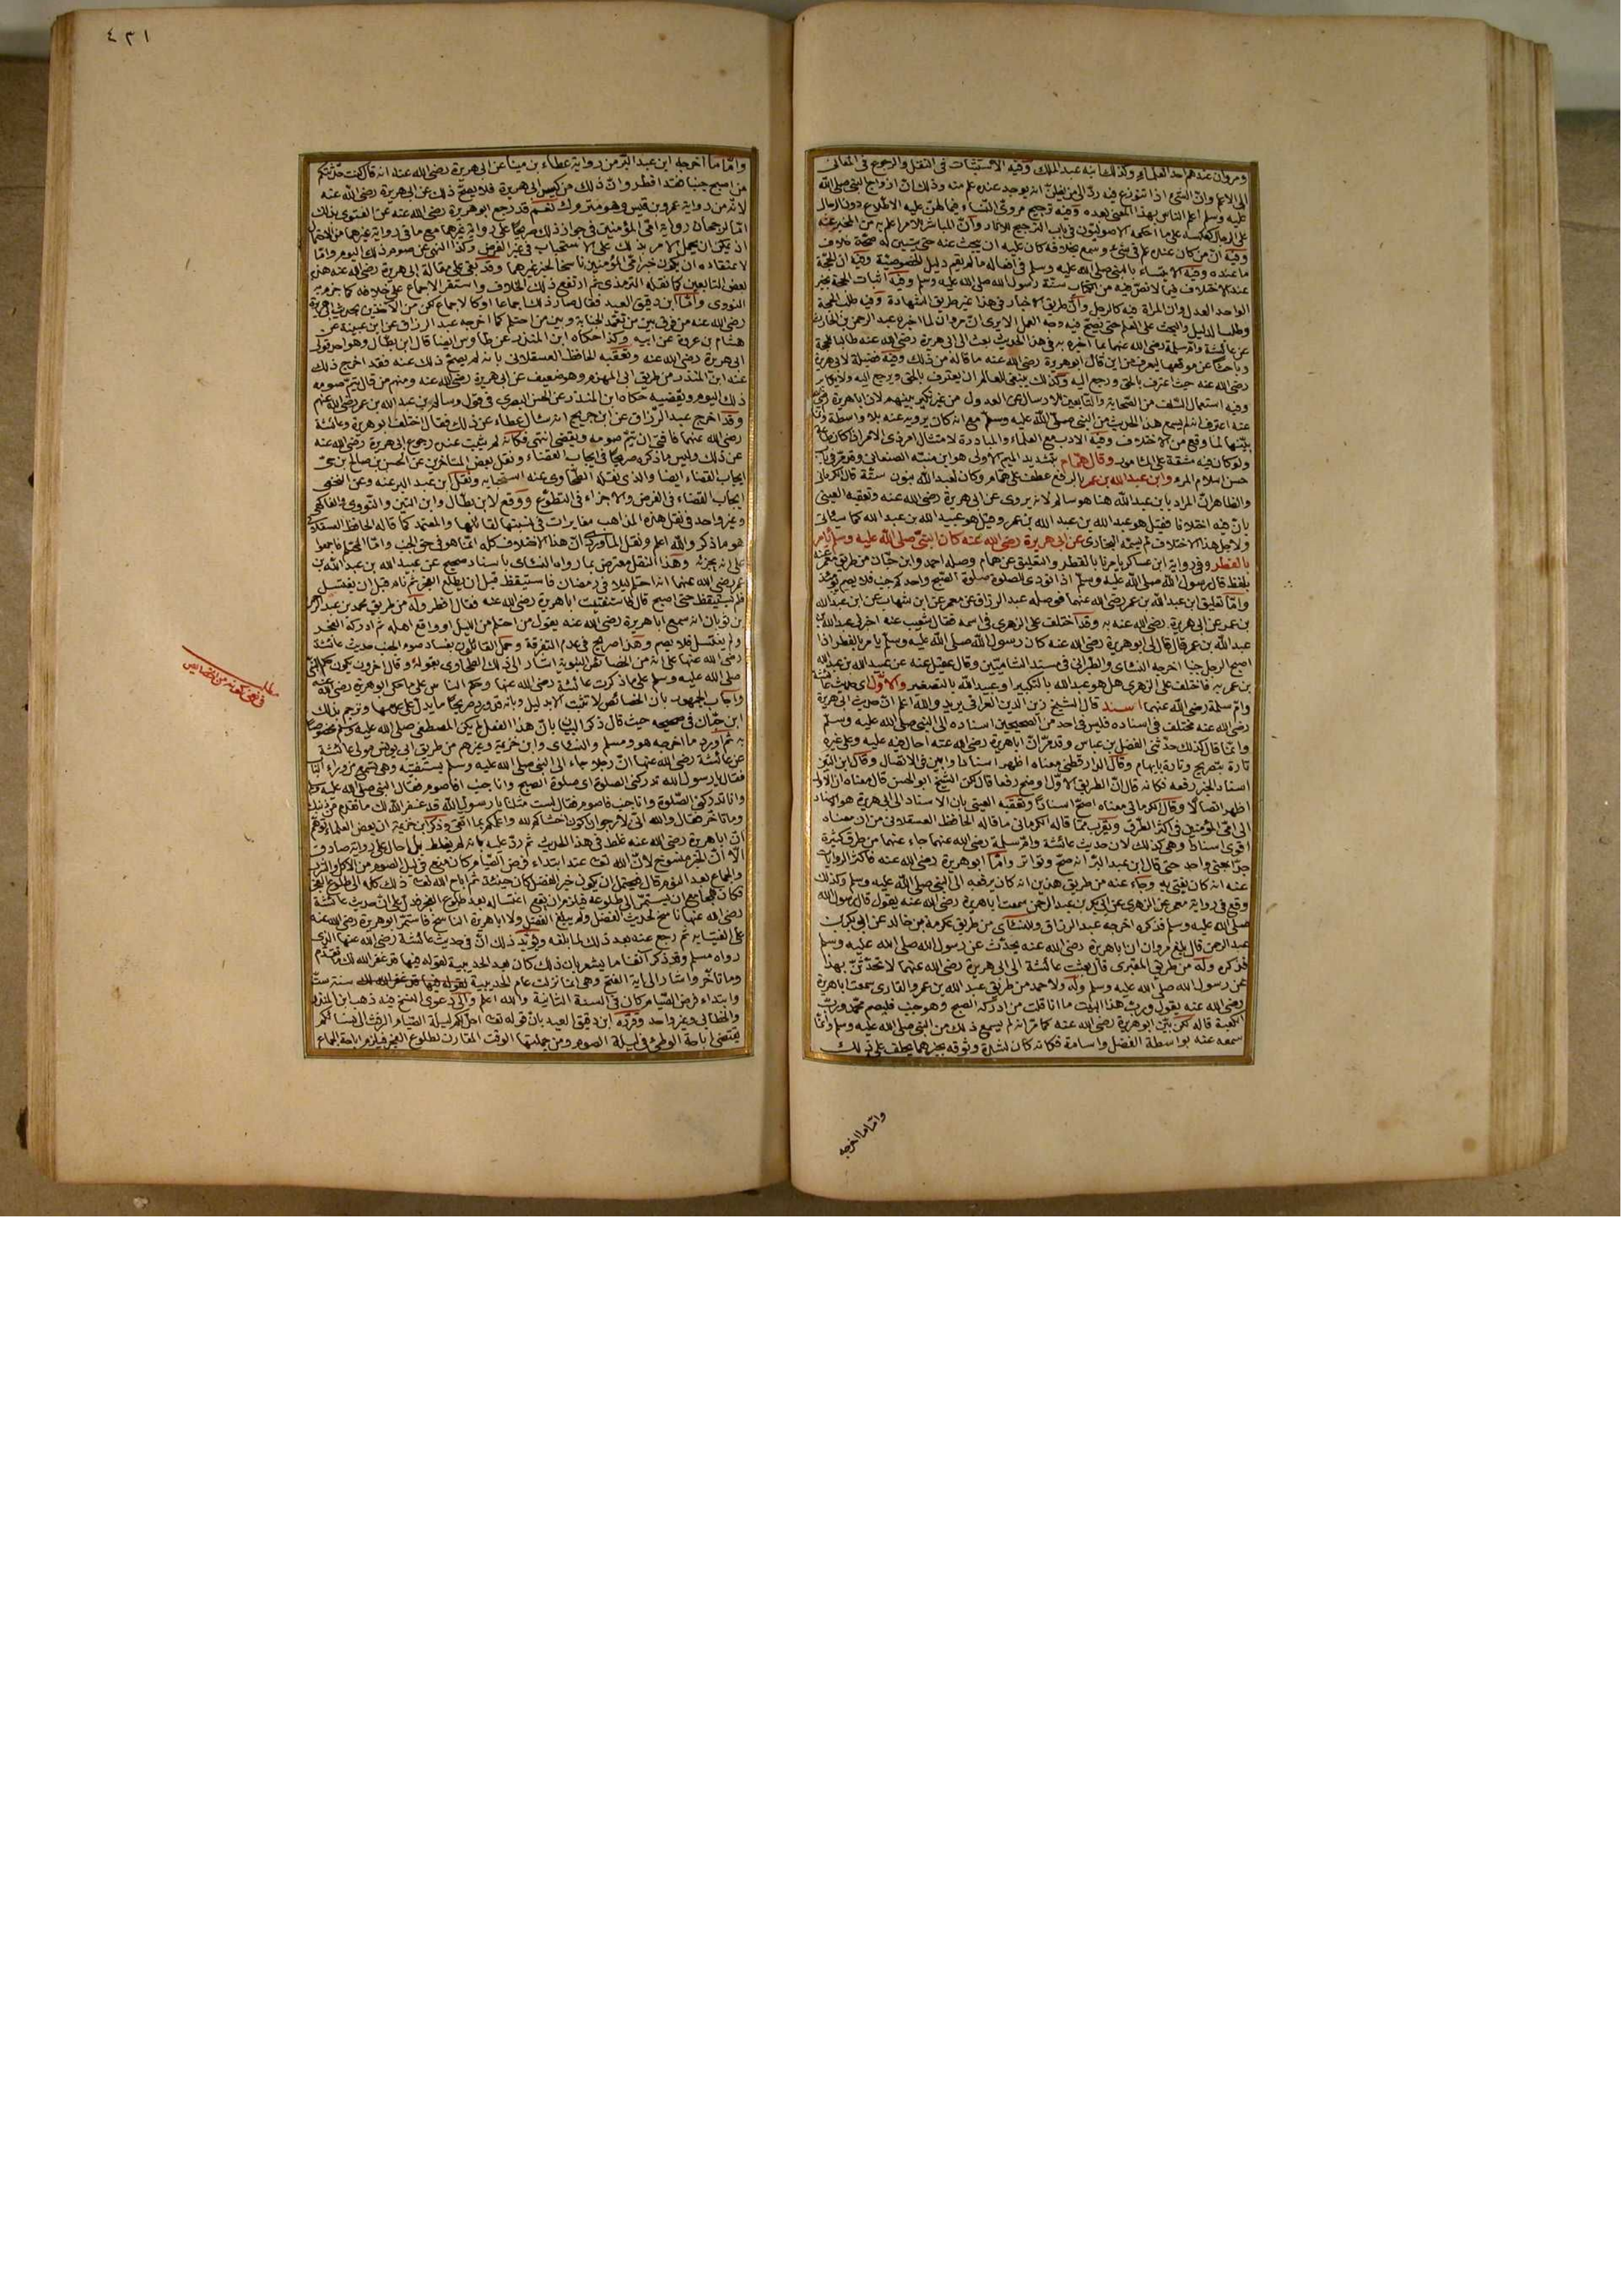 ومروان عندهم احد العلماء وكذلك ابنه عبد الملك وفيه الاستثبات في النقل والرجوع في المعاني
الى الاعلم وان الشئ اذا تنوزع فيه رد الى من يظن انه يوجد عنده علم منه وذلك ان ازواج النبي صلى الله
عليه وسلم اعلم الناس بهذا المعنى بعده وفيه ترجيح مروي النساء فيما لهن عليه الاطلاع دون الرجال
على الرجال كعكسه على ما احكمه الاصوليون في باب الترجيح للآثار وان المباشر للامر اعلم به من المخبر عنه
وفيه ان من كان عنده علم في شئ وسمع بخلافه كان عليه ان يبحث عنه حتى يتبين له صحة خلاف
ما عنده وفيه الايتساء بالنبي صلى الله عليه وسلم في افعاله ما لم يقم دليل الخصوصية وفيه ان الحجة
عند الاختلاف فيما لا نص فيه من الكتاب سنة رسول الله صلى الله عليه وسلم وفيه اثبات الحجة بخبر
الواحد العدل وان المراة فيه كالرجل وان طريق الاخبار في هذا غير طريق الشهادة وفيه طلب الحجة
وطلب الدليل والبحث على العلم حتى يصح فيه وجه العمل الا يرى ان مروان لما اخبره عبد الرحمن بن الحارث
عن عائشة وام سلمة رضي الله عنهما بما اخبره به في هذا الحديث بعث الى ابي هريرة رضي الله عنه طالبا للحجة
وباحثا عن موقعها ليعرف من اين قال ابو هريرة رضي الله عنه ما قاله من ذلك وفيه فضيلة لابي هريرة
رضي الله عنه حيث اعترف بالحق ورجع اليه وكذلك ينبغي للعالم ان يعترف بالحق ويرجع اليه ولا يكابر
وفيه استعمال السلف من الصحابة والتابعين الارسال عن العدول من غير نكير بينهم لان ابا هريرة رضي الله
عنه اعترف انه لم يسمع هذا الحديث من النبي صلى الله عليه وسلم مع انه كان يرويه عنه بلا واسطة وانما
بينها لما وقع من الاختلاف وفيه الادب مع العلماء والمبادرة لامتثال امر ذي الامر اذا كان طاعة
ولو كان فيه مشقة على المامور وقال همام بتشديد الميم الاولى هو ابن منبه الصنعاني وقد مر في باب
حسن اسلام المرء وابن عبد الله بن عمر بالرفع عطف على همام وكان لعبد الله بنون ستة قال الكرماني
والظاهر ان المراد بابن عبد الله هنا هو سالم لانه يروي عن ابي هريرة رضي الله عنه وتعقبه العيني
بان فيه اختلافا فقيل هو عبد الله بن عبد الله بن عمر وقيل هو عبيد الله بن عبد الله كما سيأتي
ولاجل هذا الاختلاف لم يسمه البخاري عن ابي هريرة رضي الله عنه كان النبي صلى الله عليه وسلم يأمر
بالفطر وفي رواية ابن عساكر يامرنا بالفطر والتعليق عن همام وصله احمد وابن حبان من طريق معمر عنه
بلفظ قال رسول الله صلى الله عليه وسلم اذا نودي للصلوة صلوة الصبح واحدكم جنب فلا يصم يومئذ
واما تعليق ابن عبد الله بن عمر رضي الله عنهما فوصله عبد الرزاق عن معمر عن ابن شهاب عن ابن عبد الله
بن عمر عن ابي هريرة رضي الله عنه به وقد اختلف على الزهري في اسمه فقال شعيب عنه اخبرني عبد الله بن
عبد الله بن عمر قال قال لي ابو هريرة رضي الله عنه كان رسول الله صلى الله عليه وسلم يأمر بالفطر اذا
اصبح الرجل جنبا اخرجه النسائي والطبراني في مسند الشاميين وقال عقيل عنه عن عبيد الله بن عبد الله
بن عمر به فاختلف على الزهري هل هو عبد الله بالتكبير او عبيد الله بالتصغير والاول اي حديث عائشة
وام سلمة رضي الله عنهما اسند قال الشيخ زين الدين العراقي يريد والله اعلم ان حديث ابي هريرة
رضي الله عنه مختلف في اسناده فليس في احد من الصحيحين اسناده الى النبي صلى الله عليه وسلم
وانما قال كذلك حدثني الفضل بن عباس وقد مر ان ابا هريرة رضي الله عنه احال فيه عليه وعلى غيره
تارة بتصريح وتارة بابهام وقال الدارقطني معناه اظهر اسنادا وابين في الاتصال وقال ابن التين
اسناد الخبر رفعه فكانه قال ان الطريق الاول اوضح رفعا قال لكن الشيخ ابو الحسن قال معناه ان الاول
اظهر اتصالا وقال الكرماني معناه اصح اسنادا وتعقبه العيني بان الاسناد الى ابي هريرة هو الاسناد
الى امي المؤمنين في اكثر الطرق ويقرب مما قاله الكرماني ما قاله الحافظ العسقلاني من ان معناه
اقوى اسنادا وهي كذلك لان حديث عائشة وام سلمة رضي الله عنهما جاء عنهما من طرق كثيرة
جدا بمعنى واحد حتى قال ابن عبد البر انه صح وتواتر واما ابو هريرة رضي الله عنه فاكثر الروايات
عنه انه كان يفتي به وجاء عنه من طريق هذين انه كان يرفعه الى النبي صلى الله عليه وسلم وكذلك
وقع في رواية معمر عن الزهري عن ابي بكر بن عبد الرحمن سمعت ابا هريرة رضي الله عنه يقول قال رسول الله
صلى الله عليه وسلم فذكره اخرجه عبد الرزاق وللنسائي من طريق عكرمة بن خالد عن ابي بكر بن
عبد الرحمن قال بلغ مروان ان ابا هريرة رضي الله عنه يحدث عن رسول الله صلى الله عليه وسلم
فذكره وله من طريق المقبري قال بعثت عائشة الى ابي هريرة رضي الله عنهما لا تحدثن بهذا
عن رسول الله صلى الله عليه وسلم وله ولاحمد من طريق عبد الله بن عمرو القاري سمعت ابا هريرة
رضي الله عنه يقول ورب هذا البيت ما انا قلت من ادركه الصبح وهو جنب فليصم محمد ورب
الكعبة قاله لكن بين ابو هريرة رضي الله عنه كما مر انه لم يسمع ذلك من النبي صلى الله عليه وسلم وانما
سمعه عنه بواسطة الفضل واسامة فكانه كان لشدة وثوقه بخبرهما يحلف على ذلك
واما ما اخرجه
٤٣١
واما ما اخرجه ابن عبد البر من رواية عطاء بن مينا عن ابي هريرة رضي الله عنه انه قال كنت حدثتكم
من اصبح جنبا فقد افطر وان ذلك من كيس ابي هريرة فلا يصح ذلك عن ابي هريرة رضي الله عنه
لانه من رواية عمرو بن قيس وهو متروك نعم قد رجع ابو هريرة رضي الله عنه عن الفتوى بذلك
اما لرجحان رواية امي المؤمنين في جواز ذلك صريحا على رواية غيرهما مع ما في رواية غيرهما من الاحتمال
اذ يمكن ان يحمل الامر بذلك على الاستحباب في غير الفرض وكذا النهي عن صوم ذلك اليوم واما
لاعتقاده ان يكون خبر امي المؤمنين ناسخا لخبر غيرهما وقد بقي على مقالة ابي هريرة رضي الله عنه هذه
بعض التابعين كما نقله الترمذي ثم ارتفع ذلك الخلاف واستقر الاجماع على خلافه كما جزم به
النووي واما ابن دقيق العيد فقال صار ذلك اجماعا او كالاجماع لكن من الآخذين بحديث ابي هريرة
رضي الله عنه من فرق بين من تعمد الجنابة وبين من احتلم كما اخرجه عبد الرزاق عن ابن عيينة عن
هشام بن عروة عن ابيه وكذا حكاه ابن المنذر عن طاوس ايضا قال ابن بطال وهو احد قولي
ابي هريرة رضي الله عنه وتعقبه الحافظ العسقلاني بانه لم يصح ذلك عنه فقد اخرج ذلك
عنه ابن المنذر من طريق ابي المهزم وهو ضعيف عن ابي هريرة رضي الله عنه ومنهم من قال يتم صومه
ذلك اليوم ويقضيه حكاه ابن المنذر عن الحسن البصري في قول وسالم بن عبد الله بن عمر رضي الله عنهم
وقد اخرج عبد الرزاق عن ابن جريج انه سأل عطاء عن ذلك فقال اختلف ابو هريرة وعائشة
رضي الله عنهما فأفتى ان يتم صومه ويقضي انتهى فكأنه لم يثبت عنده رجوع ابي هريرة رضي الله عنه
عن ذلك وليس ما ذكره صريحا في ايجاب القضاء ونقل بعض المتاخرين عن الحسن بن صالح بن حي
ايجاب القضاء ايضا والذي نقله الطحاوي عنه استحبابه ونقل ابن عبد البر عنه وعن النخعي
ايجاب القضاء في الفرض والاجزاء في التطوع ووقع لابن بطال وابن التين والنووي والفاكهي
وغير واحد في نقل هذه المذاهب مغايرات في نسبتها لقائليها والمعتمد كما قاله الحافظ العسقلاني
هو ما ذكر والله اعلم ونقل الماوردي ان هذا الاختلاف كله انما هو في حق الجنب واما المحتلم فاجمعوا
على انه يجزئه وهذا النقل معترض بما رواه النسائي باسناد صحيح عن عبيد الله بن عبد الله بن
عمر رضي الله عنهما انه احتلم ليلا في رمضان فاستيقظ قبل ان يطلع الفجر ثم نام قبل ان يغتسل
فلم يستيقظ حتى اصبح قال فاستفتيت ابا هريرة رضي الله عنه فقال افطر وله من طريق محمد بن عبد الرحمن
بن ثوبان انه سمع ابا هريرة رضي الله عنه يقول من احتلم من الليل او واقع اهله ثم ادركه الفجر
ولم يغتسل فلا يصم وهذا صريح في عدم التفرقة وحمل القائلون بفساد صوم الجنب حديث عائشة
رضي الله عنها على انه من الخصائص النبوية اشار الى ذلك الطحاوي بقوله وقال آخرون يكون حكم النبي
صلى الله عليه وسلم على ما ذكرت عائشة رضي الله عنها وحكم الناس على ما حكى ابو هريرة رضي الله عنه
واجاب الجمهور بان الخصائص لا تثبت الا بدليل وبانه قد ورد صريحا ما يدل على عدمها وترجم بذلك
ابن حبان في صحيحه حيث قال ذكر البيان بان هذا الفعل لم يكن المصطفى صلى الله عليه وسلم مخصوصا
به ثم اورد ما اخرجه هو ومسلم والنسائي وابن خزيمة وغيرهم من طريق ابي يونس مولى عائشة
عن عائشة رضي الله عنها ان رجلا جاء الى النبي صلى الله عليه وسلم يستفتيه وهي تسمع من وراء الباب
فقال يا رسول الله تدركني الصلوة اي صلوة الصبح وانا جنب افأصوم فقال النبي صلى الله عليه وسلم
وانا تدركني الصلوة وانا جنب فاصوم فقال لست مثلنا يا رسول الله قد غفر الله لك ما تقدم من ذنبك
وما تأخر فقال والله اني لارجو ان اكون اخشاكم لله واعلمكم بما اتقي وذكر ابن خزيمة ان بعض العلماء توهم
ان ابا هريرة رضي الله عنه غلط في هذا الحديث ثم رد عليه بانه لم يغلط بل احال على رواية صادق
الا ان الخبر منسوخ لان الله تعالى عند ابتداء فرض الصيام كان منع في ليل الصوم من الاكل والشرب
والجماع بعد النوم قال فيحتمل ان يكون خبر الفضل كان حينئذ ثم اباح الله تعالى ذلك كله الى طلوع الفجر
فكان للمجامع ان يستمر الى طلوعه فيلزم ان يقع اغتساله بعد طلوع الفجر فدل على ان حديث عائشة
رضي الله عنها ناسخ لحديث الفضل ولم يبلغ الفضل ولا ابا هريرة الناسخ فاستمر ابو هريرة رضي الله عنه
على الفتيا به ثم رجع عنه بعد ذلك لما بلغه ويؤيد ذلك ان في حديث عائشة رضي الله عنها الذي
رواه مسلم وقد ذكر آنفا ما يشعر بان ذلك كان بعد الحديبية لقوله فيها قد غفر الله لك ما تقدم
وما تأخر واشار الى اية الفتح وهي انما نزلت عام الحديبية سنة ست
وابتداء فرض الصيام كان في السنة الثانية والله اعلم والى دعوى النسخ فيه ذهب ابن المنذر
والخطابي وغير واحد وقرره ابن دقيق العيد بان قوله تعالى احل لكم ليلة الصيام الرفث الى نسائكم
يقتضي اباحة الوطئ في ليلة الصوم ومن جملتها الوقت المقارن لطلوع الفجر فيلزم اباحة الجماع